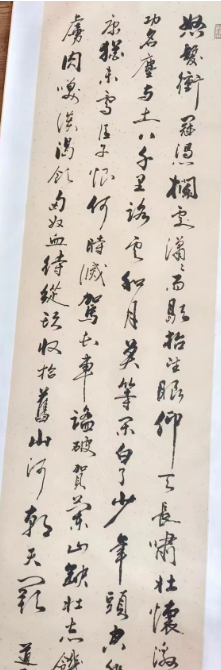 怒髮衝冠凭欄處潇潇雨歇抬望眼仰天長嘯壮懷激
功名塵与土八千里路雲和月莫等閑白了少年頭空
康猶未雪臣子恨何時滅駕長車踏破賀蘭山缺壮志饑
虜肉笑談渴飲匈奴血待從頭收拾舊山河朝天闕